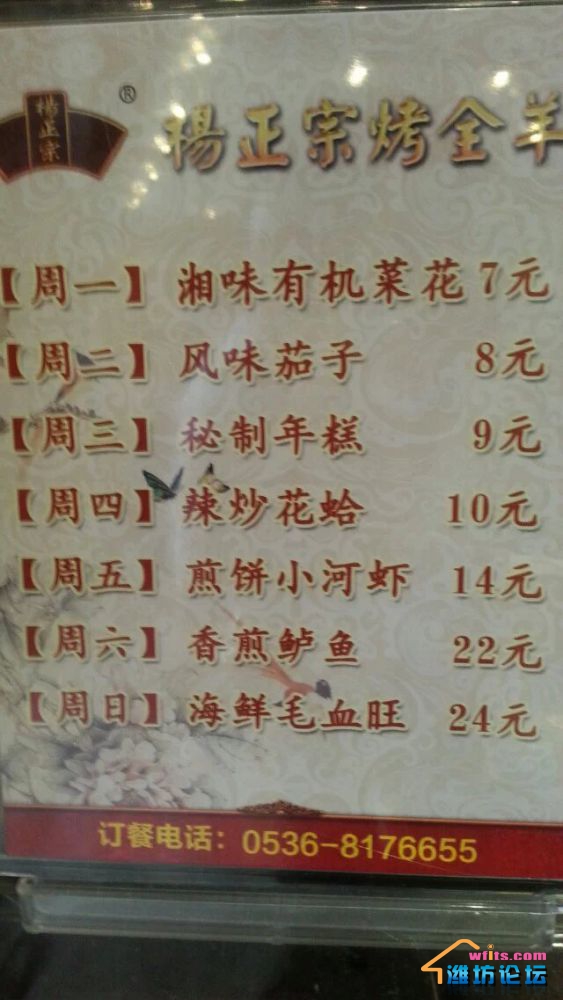 楊正宗
®
楊正宗烤全羊
【周一】湘味有机菜花 7元
【周二】风味茄子 8元
【周三】秘制年糕 9元
【周四】辣炒花蛤 10元
【周五】煎饼小河虾 14元
【周六】香煎鲈鱼 22元
【周日】海鲜毛血旺 24元
订餐电话：0536-8176655
wfits.com
潍坊论坛